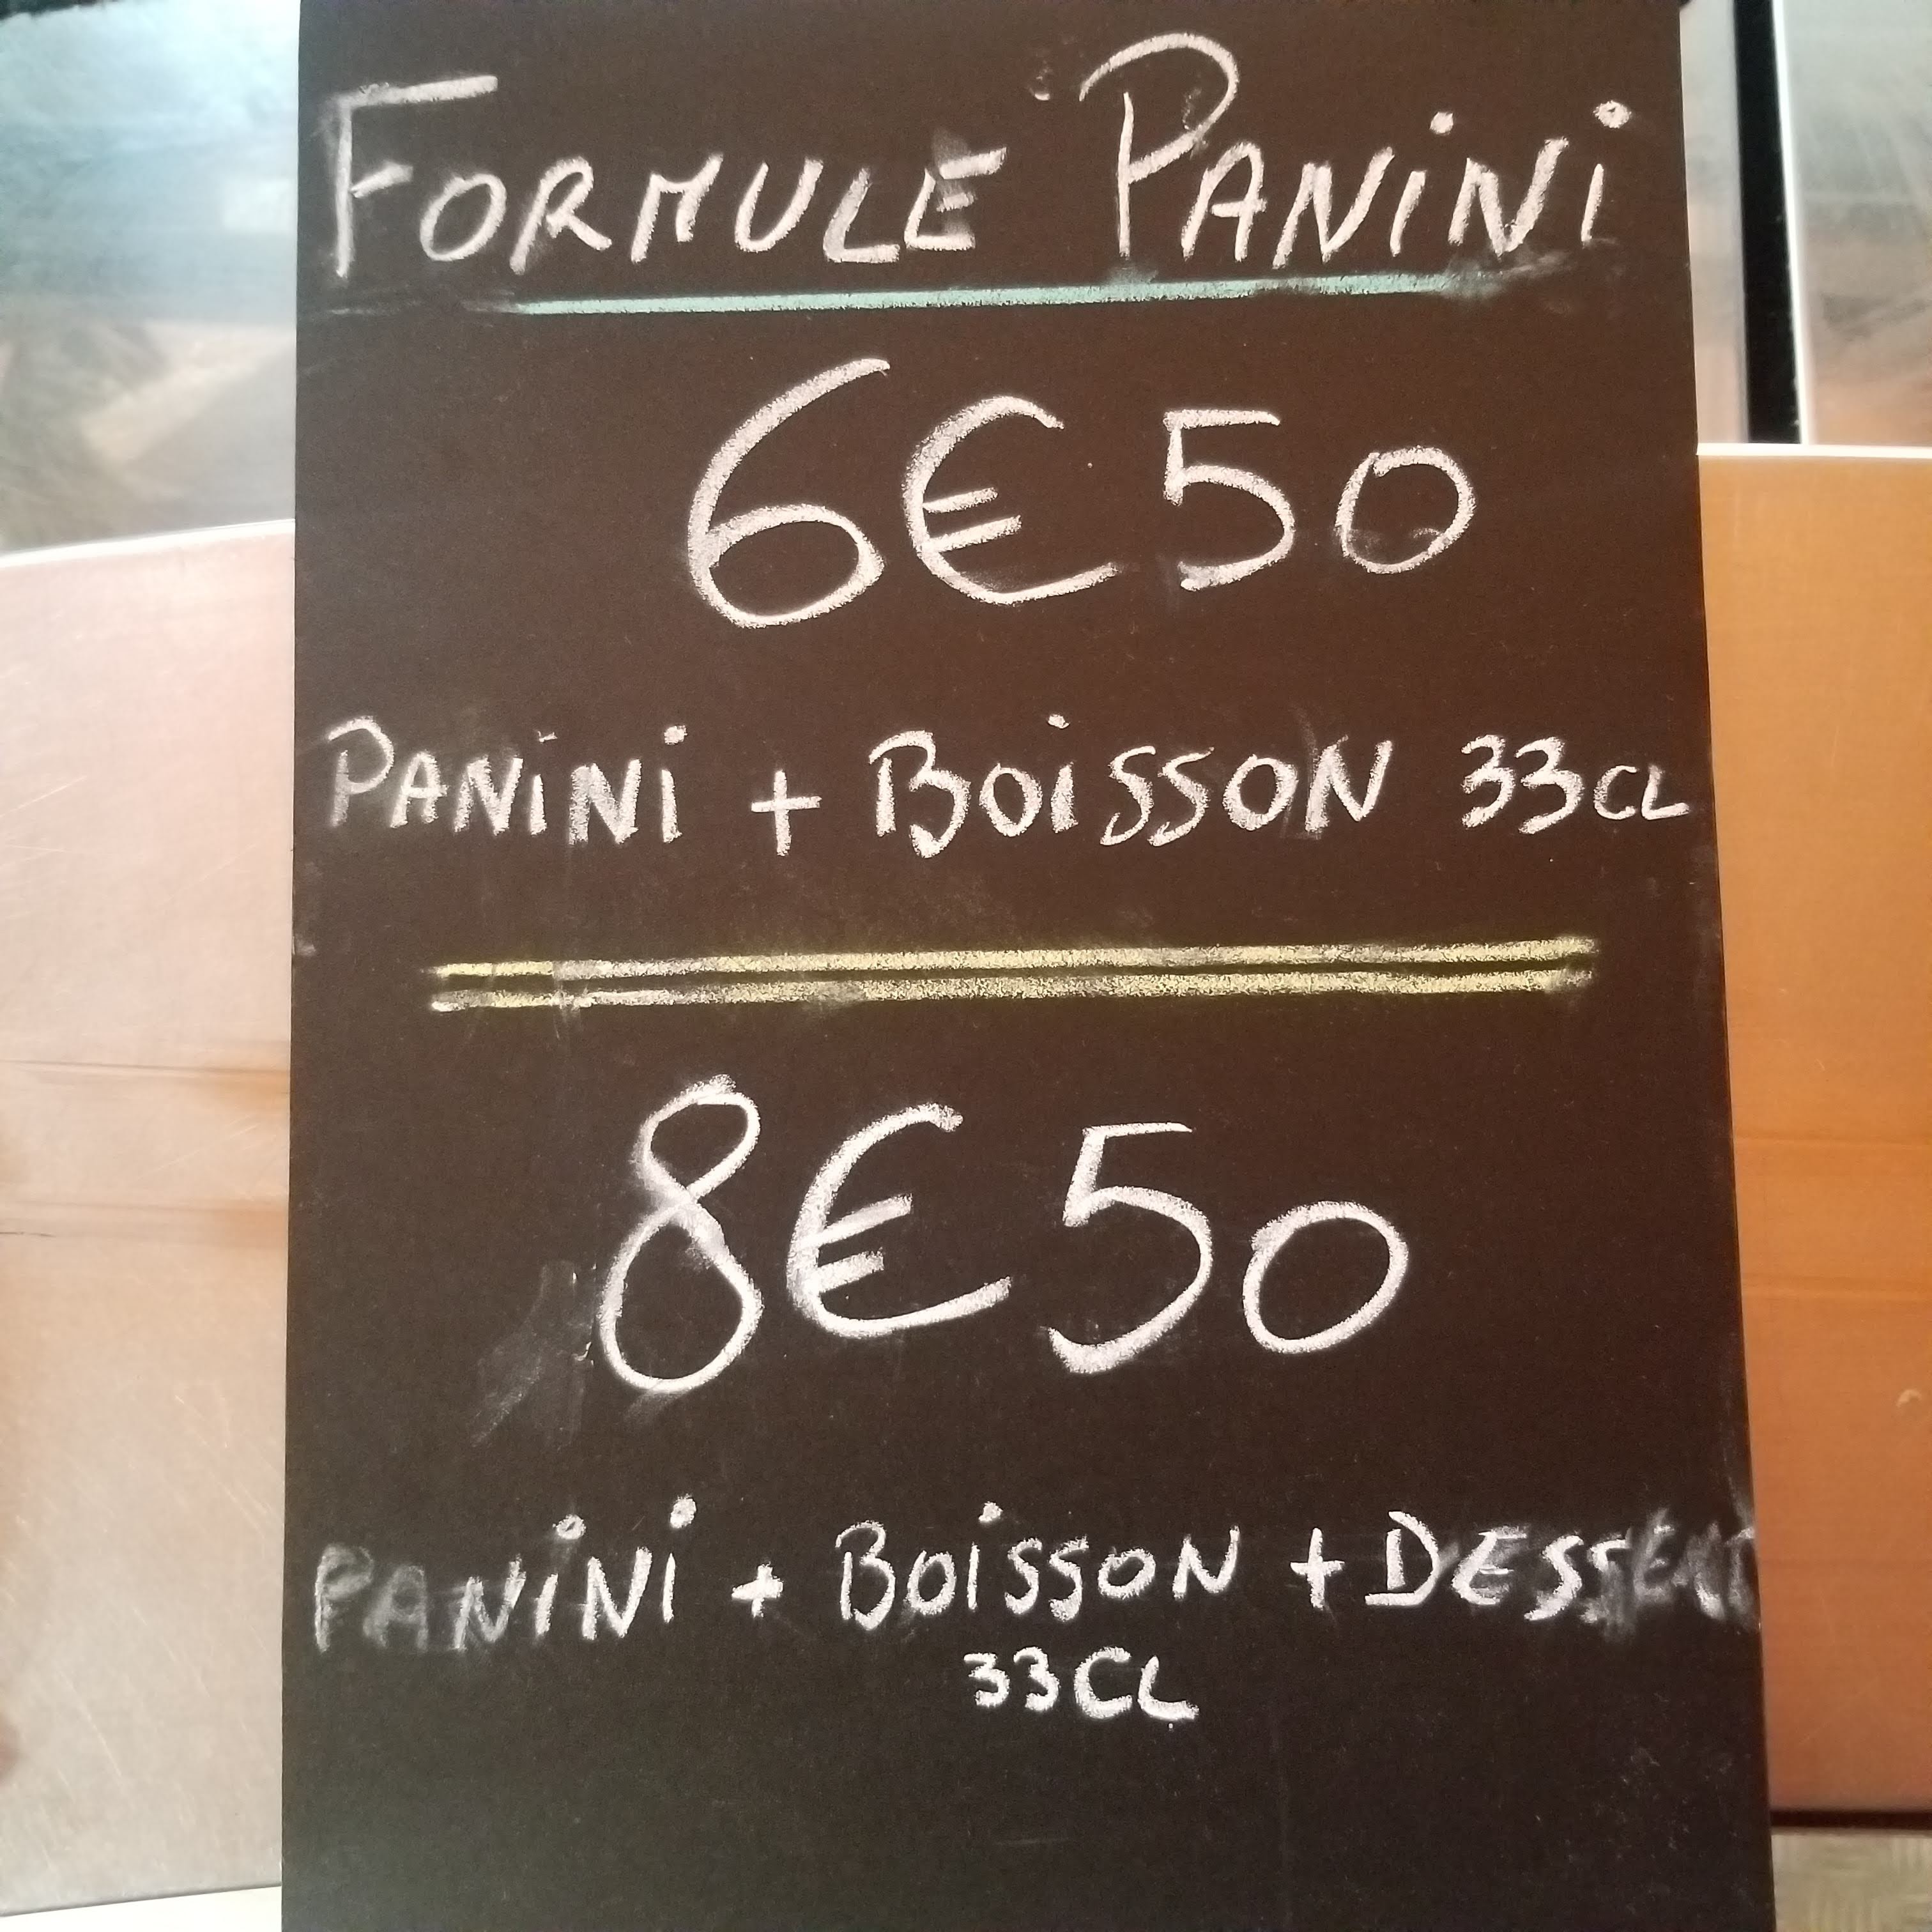 FORMULE PANiNi
6€50
PANiNi + BOiSSON 33CL
8€50
PANiNi + BOiSSON + DESSERT
33CL